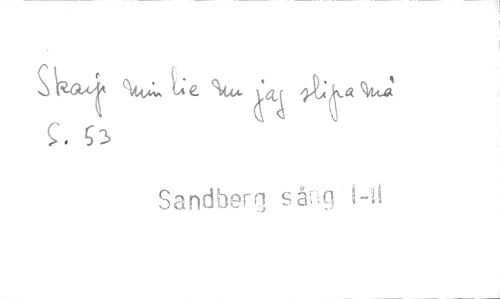 Skarp min lie nu jag slipa må
S. 53
Sandberg sång I-II